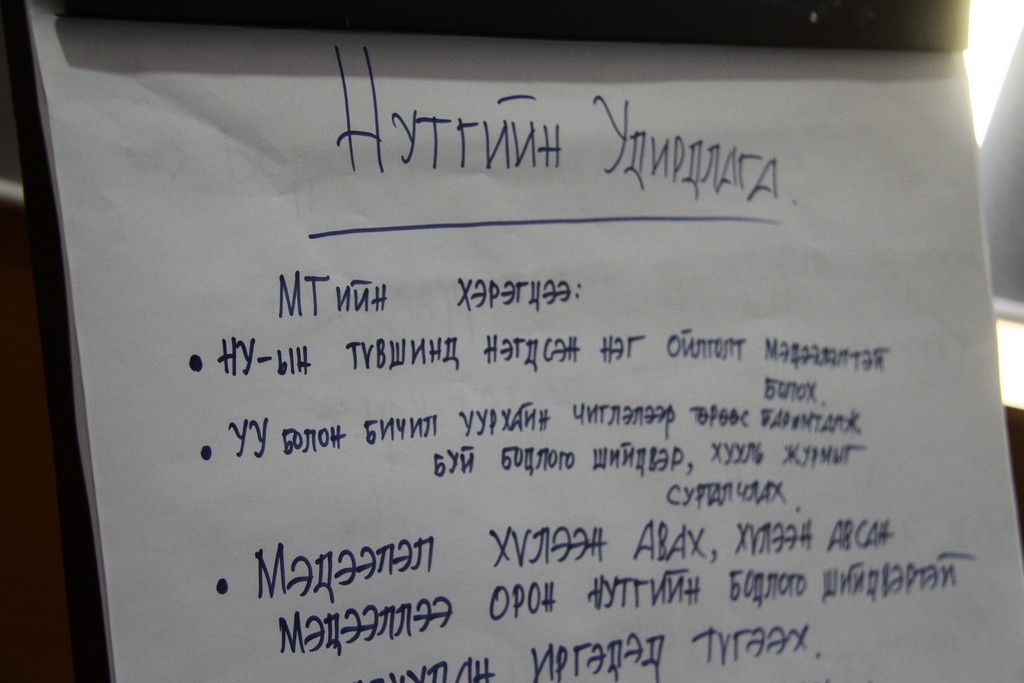 Нутгийн Удирдлага.
МТ ийн хэрэгцээ:
• НУ-ын түвшинд нэгдсэн нэг ойлголт мэдээлэлтэй
болох.
• УУ болон бичил уурхайн чиглэлээр төрөөс баримталж
буй бодлого шийдвэр, хууль журмыг
сурталчлах.
• Мэдээлэл хүлээн авах, хүлээн авсан
мэдээллээ орон нутгийн бодлого шийдвэртэй
иргэдэд түгээх.